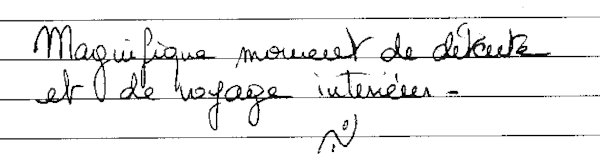 Magnifique moment de détente
et de voyage intérieur.